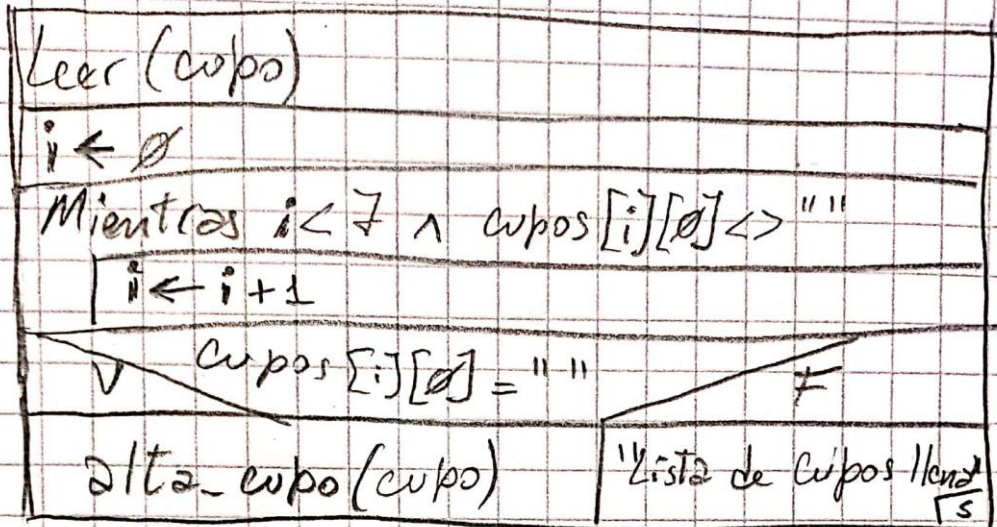 Leer (cupo)
i ← 0
Mientras i < 7 ∧ cupos [i][0] <> " "
i ← i + 1
cupos [i][0] = " "
V
F
alta_cupo (cupo)
"Lista de cupos llena"
S